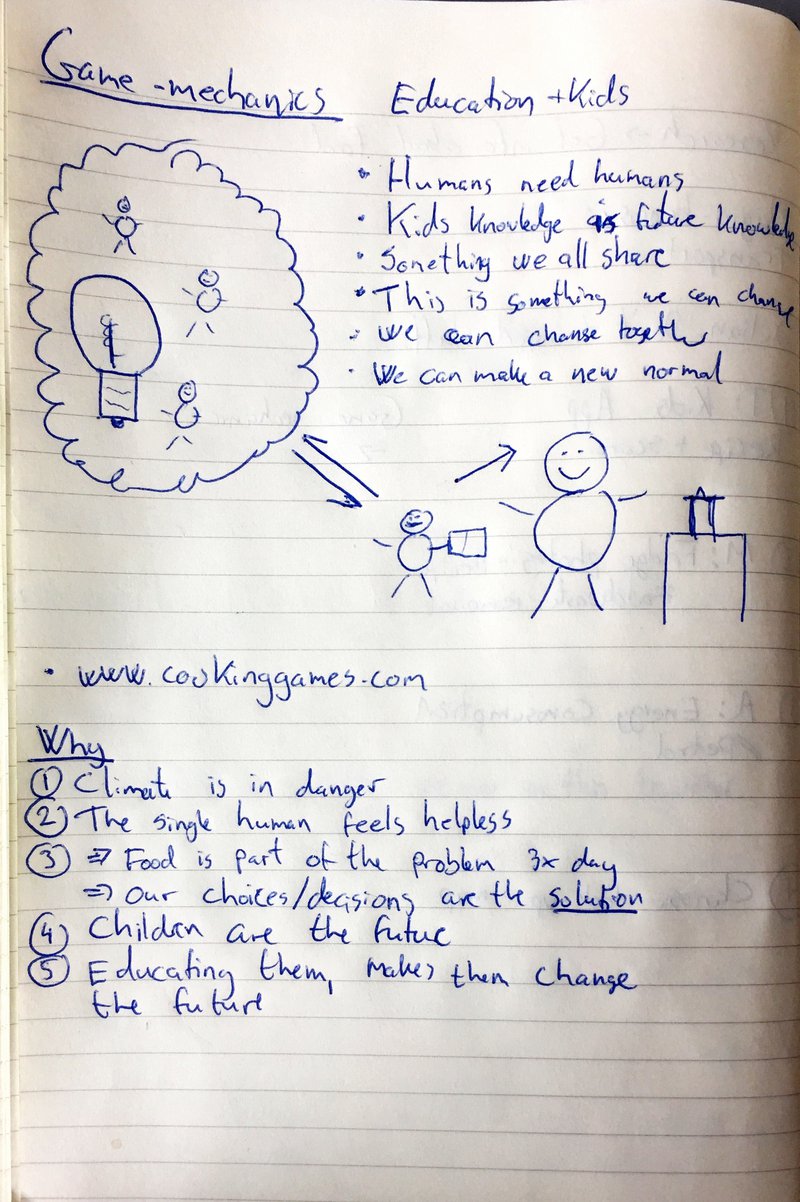 Game-mechanics Education + Kids
• Humans need humans
• Kids knowledge is future knowledge
• Something we all share
• This is something we can change
• We can change together
• We can make a new normal
• www.cookinggames.com
Why
① Climate is in danger
② The single human feels helpless
③ ⇒ Food is part of the problem 3x day
⇒ Our choices/decisions are the solution
④ Children are the future
⑤ Educating them, makes them change
the future